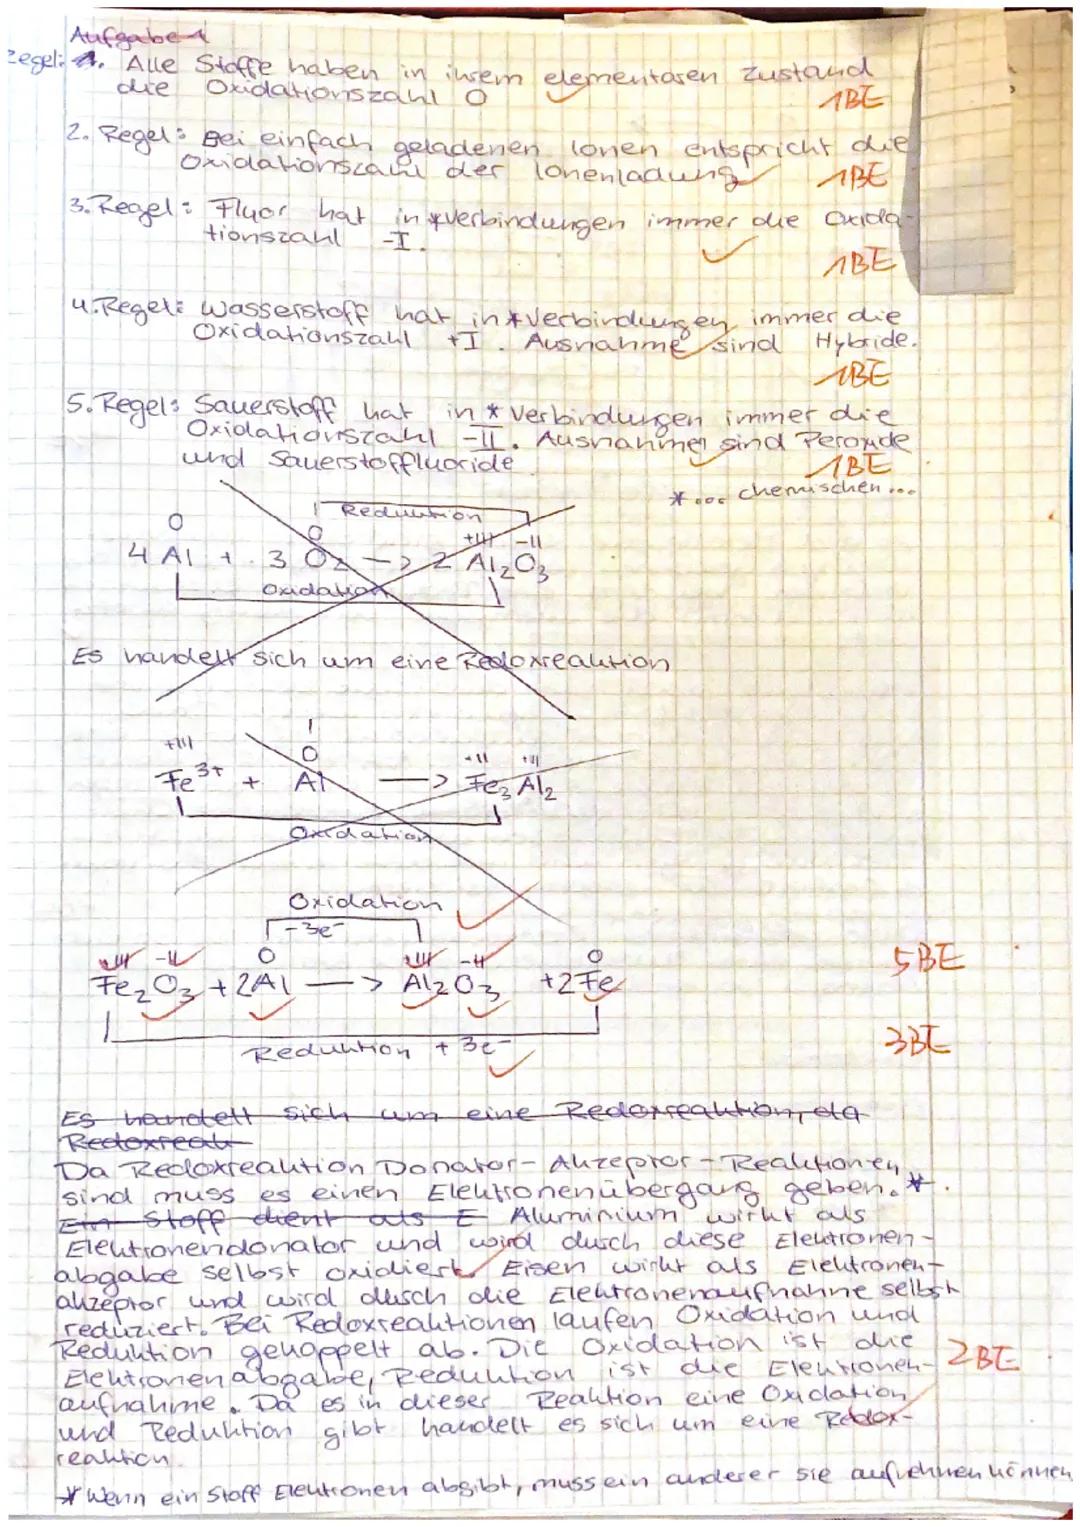 Aufgabe 1
Regel: 1. Alle Stoffe haben in ihrem elementaren Zustand
die Oxidationszahl 0
1BE
2. Regel: Bei einfach geladenen Ionen entspricht die
Oxidationszahl der Ionenladung
1BE
3. Regel: Fluor hat in *Verbindungen immer die Oxida-
tionszahl -I.
1BE
4. Regel: Wasserstoff hat in *Verbindungen immer die
Oxidationszahl +I. Ausnahme sind Hybride.
1BE
5. Regel: Sauerstoff hat in *Verbindungen immer die
Oxidationszahl -II. Ausnahmen sind Peroxide
und Sauerstofffluoride
1BE
*... chemischen ...
Reduktion
0 0 +III -II
4 Al + 3 O2 -> 2 Al2O3
Oxidation
Es handelt sich um eine Redoxreaktion
+III 0 -II +III
Fe3+ + Al -> Fe3 Al2
Oxidation
Oxidation
-3e-
+III -II 0 +III -II 0
5BE
Fe2O3 + 2Al -> Al2O3 +2Fe
Reduktion +3e-
3BE
Es handelt sich um eine Redoxreaktion, da
Redoxreak
Da Redoxreaktion Donator-Akzeptor-Reaktionen
sind muss es einen Elektronenübergang geben.*.
Ein Stoff dient als E Aluminium wirkt als
Elektronendonator und wird durch diese Elektronen-
abgabe selbst oxidiert. Eisen wirkt als Elektronen-
akzeptor und wird durch die Elektronenaufnahme selbst
reduziert. Bei Redoxreaktionen laufen Oxidation und
Reduktion gekoppelt ab. Die Oxidation ist die
Elektronenabgabe, Reduktion ist die Elektronen-
2BE
aufnahme. Da es in dieser Reaktion eine Oxidation
und Reduktion gibt handelt es sich um eine Redox-
reaktion.
* Wenn ein Stoff Elektronen abgibt, muss ein anderer sie aufnehmen können